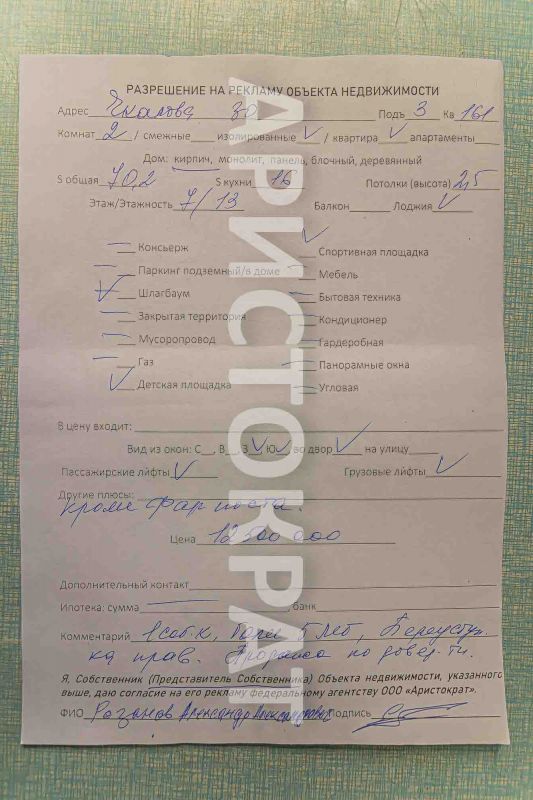 РАЗРЕШЕНИЕ НА РЕКЛАМУ ОБЪЕКТА НЕДВИЖИМОСТИ
Адрес Чкалова 30 Подъ 3 Кв 161
Комнат 2 / смежные изолированные ✓ / квартира ✓ апартаменты
Дом: кирпич, монолит, панель, блочный, деревянный
S общая 70,2 S кухни 16 Потолки (высота) 2,5
Этаж/Этажность 7/13 Балкон Лоджия ✓
Консьерж Спортивная площадка
Паркинг подземный/в доме Мебель
Шлагбаум Бытовая техника
Закрытая территория Кондиционер
Мусоропровод Гардеробная
Газ Панорамные окна
Детская площадка Угловая
В цену входит:
Вид из окон: С, В, З ✓, Ю ✓, во двор ✓ на улицу
Пассажирские лифты ✓ Грузовые лифты ✓
Другие плюсы:
кроме Фарпоста.
Цена 12 500 000
Дополнительный контакт
Ипотека: сумма , банк
Комментарий 1 соб-к, более 5 лет, Переуступ-
ка прав. Продажа по довер-ти.
Я, Собственник (Представитель Собственника) Объекта недвижимости, указанного
выше, даю согласие на его рекламу федеральному агентству ООО «Аристократ».
ФИО Александр Александрович Подпись
АРИСТОКРАТ